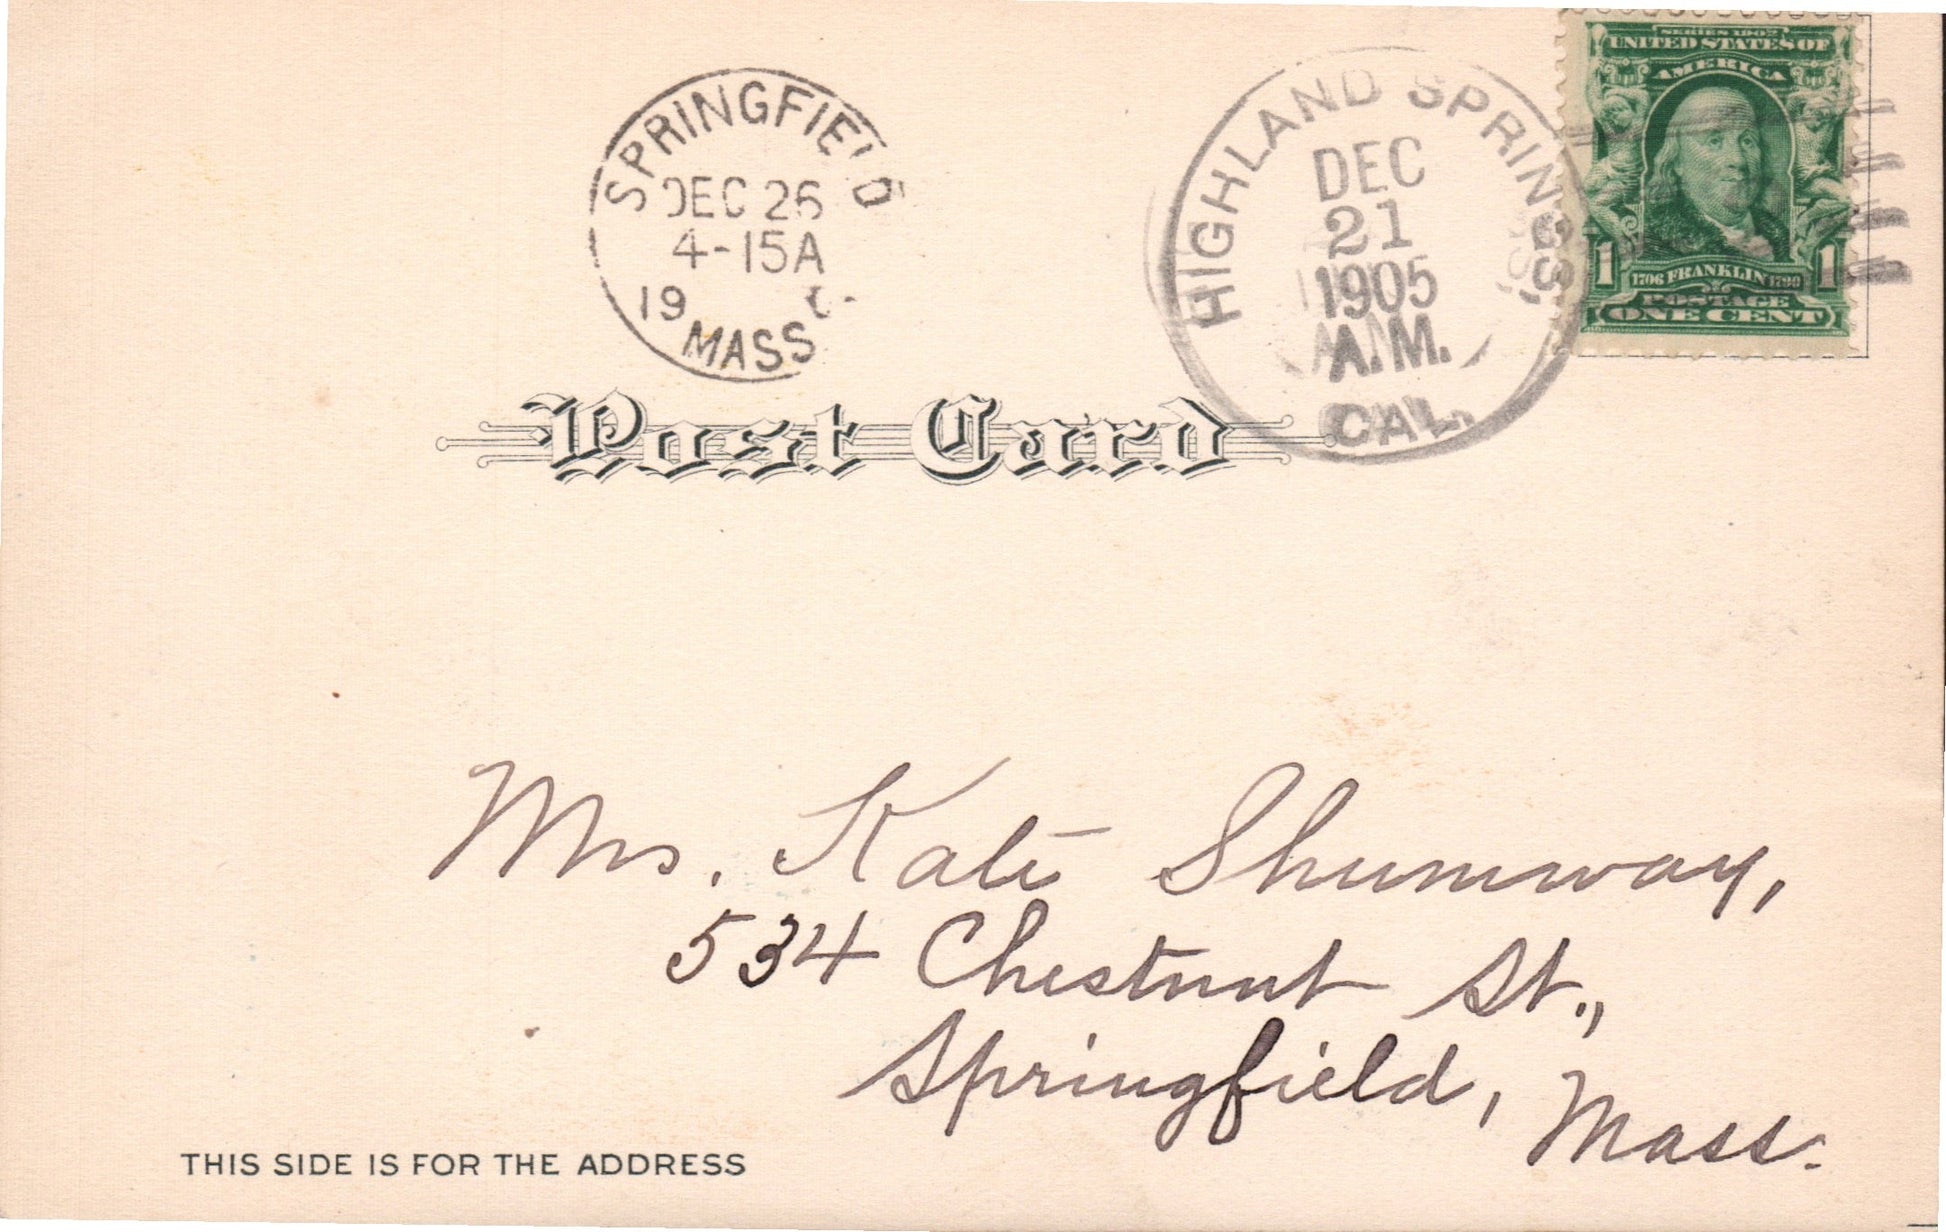 SPRINGFIELD
DEC 26
4-15A
19
MASS
HIGHLAND SPRINGS,
DEC
21
1905
A.M.
CAL.
SERIES 1902
UNITED STATES OF
AMERICA
1706 FRANKLIN 1790
1 1
POSTAGE
ONE CENT
Post Card
Mrs. Kate Shumway,
534 Chestnut St.,
Springfield, Mass.
THIS SIDE IS FOR THE ADDRESS